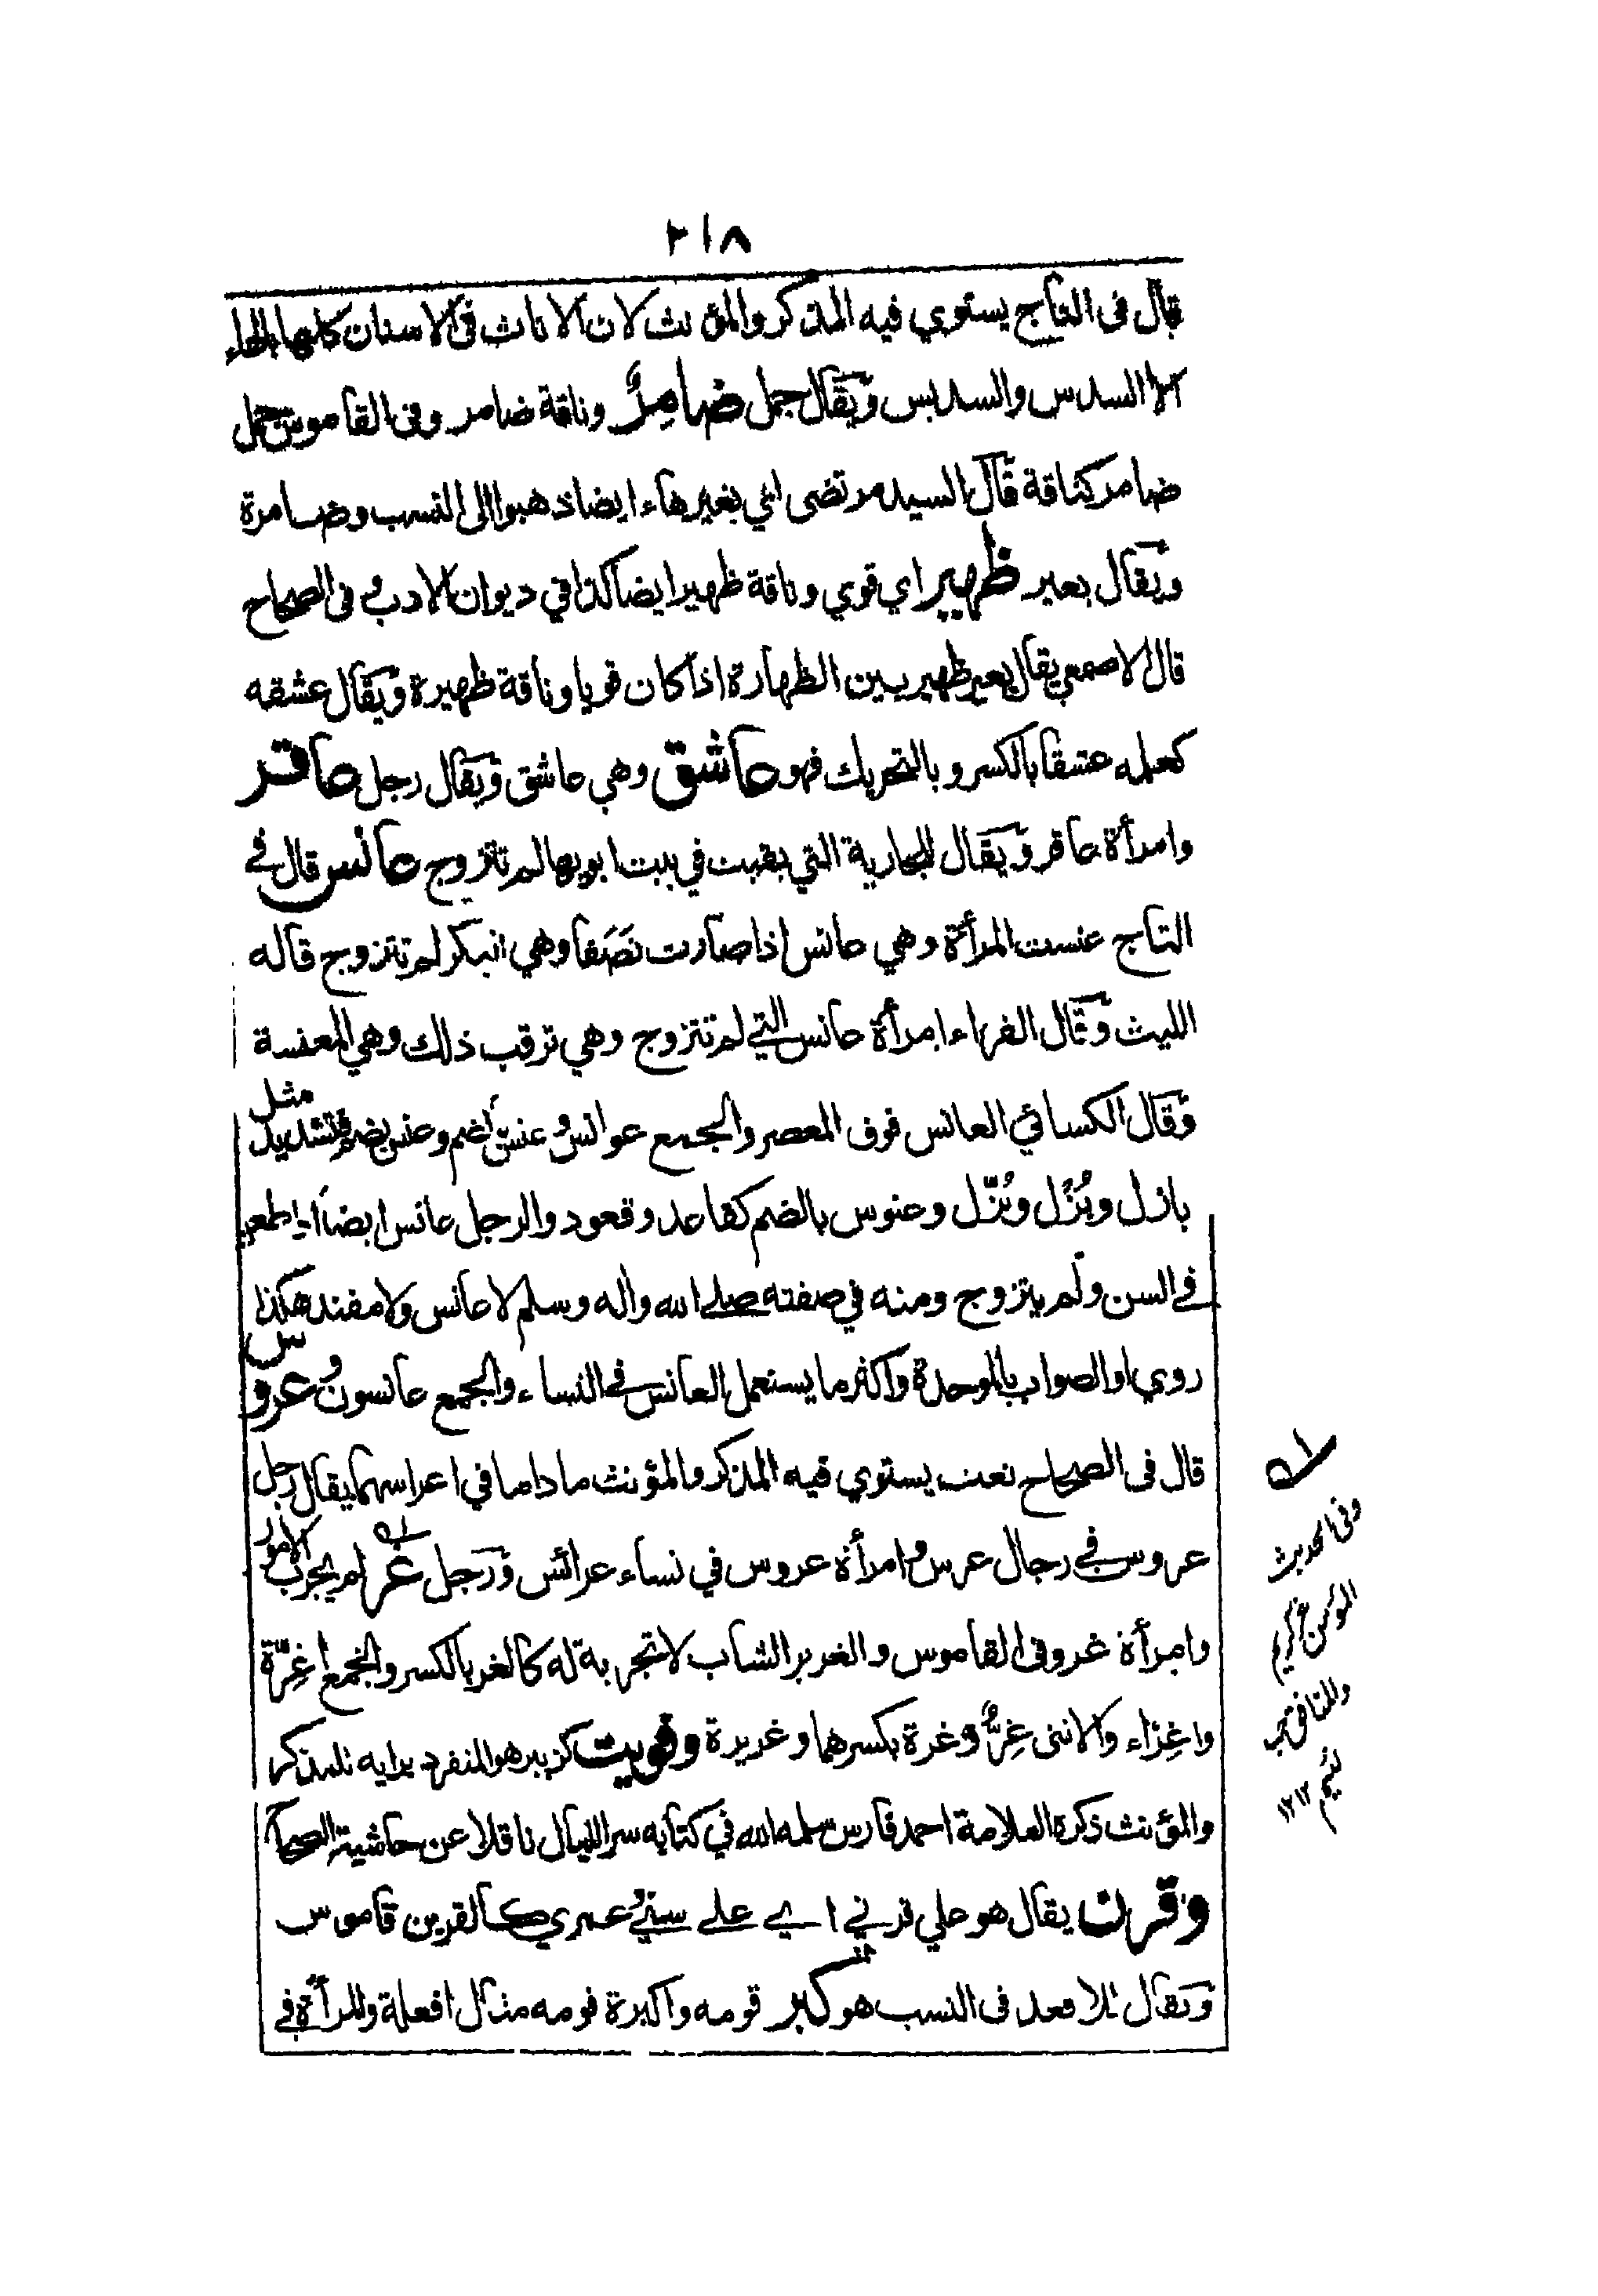 ٢١٨
قال في التاج يستوي فيه المذكر والمؤنث لان الاناث في الاسنان كلها بالهاء
الا السدس والسديس ويقال جمل ضامر وناقة ضامر وفي القاموس جمل
ضامر كناقة قال السيد مرتضى اي بغير هاء ايضا ذهبوا الى النسب وضامرة
ويقال بعير ظهير اي قوي وناقة ظهير ايضا كذا في ديوان الادب و في الصحاح
قال الاصمعي يقال بعير ظهير بين الظهارة اذا كان قويا وناقة ظهيرة ويقال عشقه
كعلمه عشقا بالكسر و بالتحريك فهو عاشق وهي عاشق ويقال رجل عاقر
وامرأة عاقر ويقال للجارية التي بقيت في بيت ابويها لم تتزوج عانس قال في
التاج عنست المرأة وهي عانس اذا صارت نَصَفا وهي البكر لم تتزوج قاله
الليث وقال الفراء امرأة عانس التي لم تتزوج وهي ترقب ذلك وهي المعنسة
وقال الكسائي العانس فوق المعصر والجمع عوانس و عنس بضم وعنس بضم فتشديد مثل
بازل وبُزْل وبُزّل وعنوس بالضم كقاعد وقعود والرجل عانس ايضا اي طعن
في السن ولم يتزوج ومنه في صفته صلى الله واله وسلم لا عانس ولا مفند هكذا
روي او الصواب بالموحدة واكثر ما يستعمل العانس في النساء والجمع عانسون وعروس
قال في الصحاح نعت يستوي فيه المذكر والمؤنث ما داما في اعراسهما يقال رجل
عروس في رجال عرس و امرأة عروس في نساء عرائس ورجل غر لم يجرب الامور
وامرأة غر وفي القاموس والغرير الشاب لا تجربة له كالغر بالكسر والجمع اغِرّة
واغِرّاء والانثى غِرٌّ وغرة بكسرهما وغريرة وفويت كزبير هو المنفرد برايه للمذكر
والمؤنث ذكره العلامة احمد فارس سلمه الله في كتابه سر الليال ناقلا عن حاشية الصحاح
وقرن يقال هو على قرني اي على سني وعمري كالقرين قاموس
ويقال للاقعد في النسب هو كبر قومه واكبرة قومه مثال افعلة والمرأة في
وفي الحديث
المؤمن غر كريم
والمنافق خب
لئيم ١٢١٢